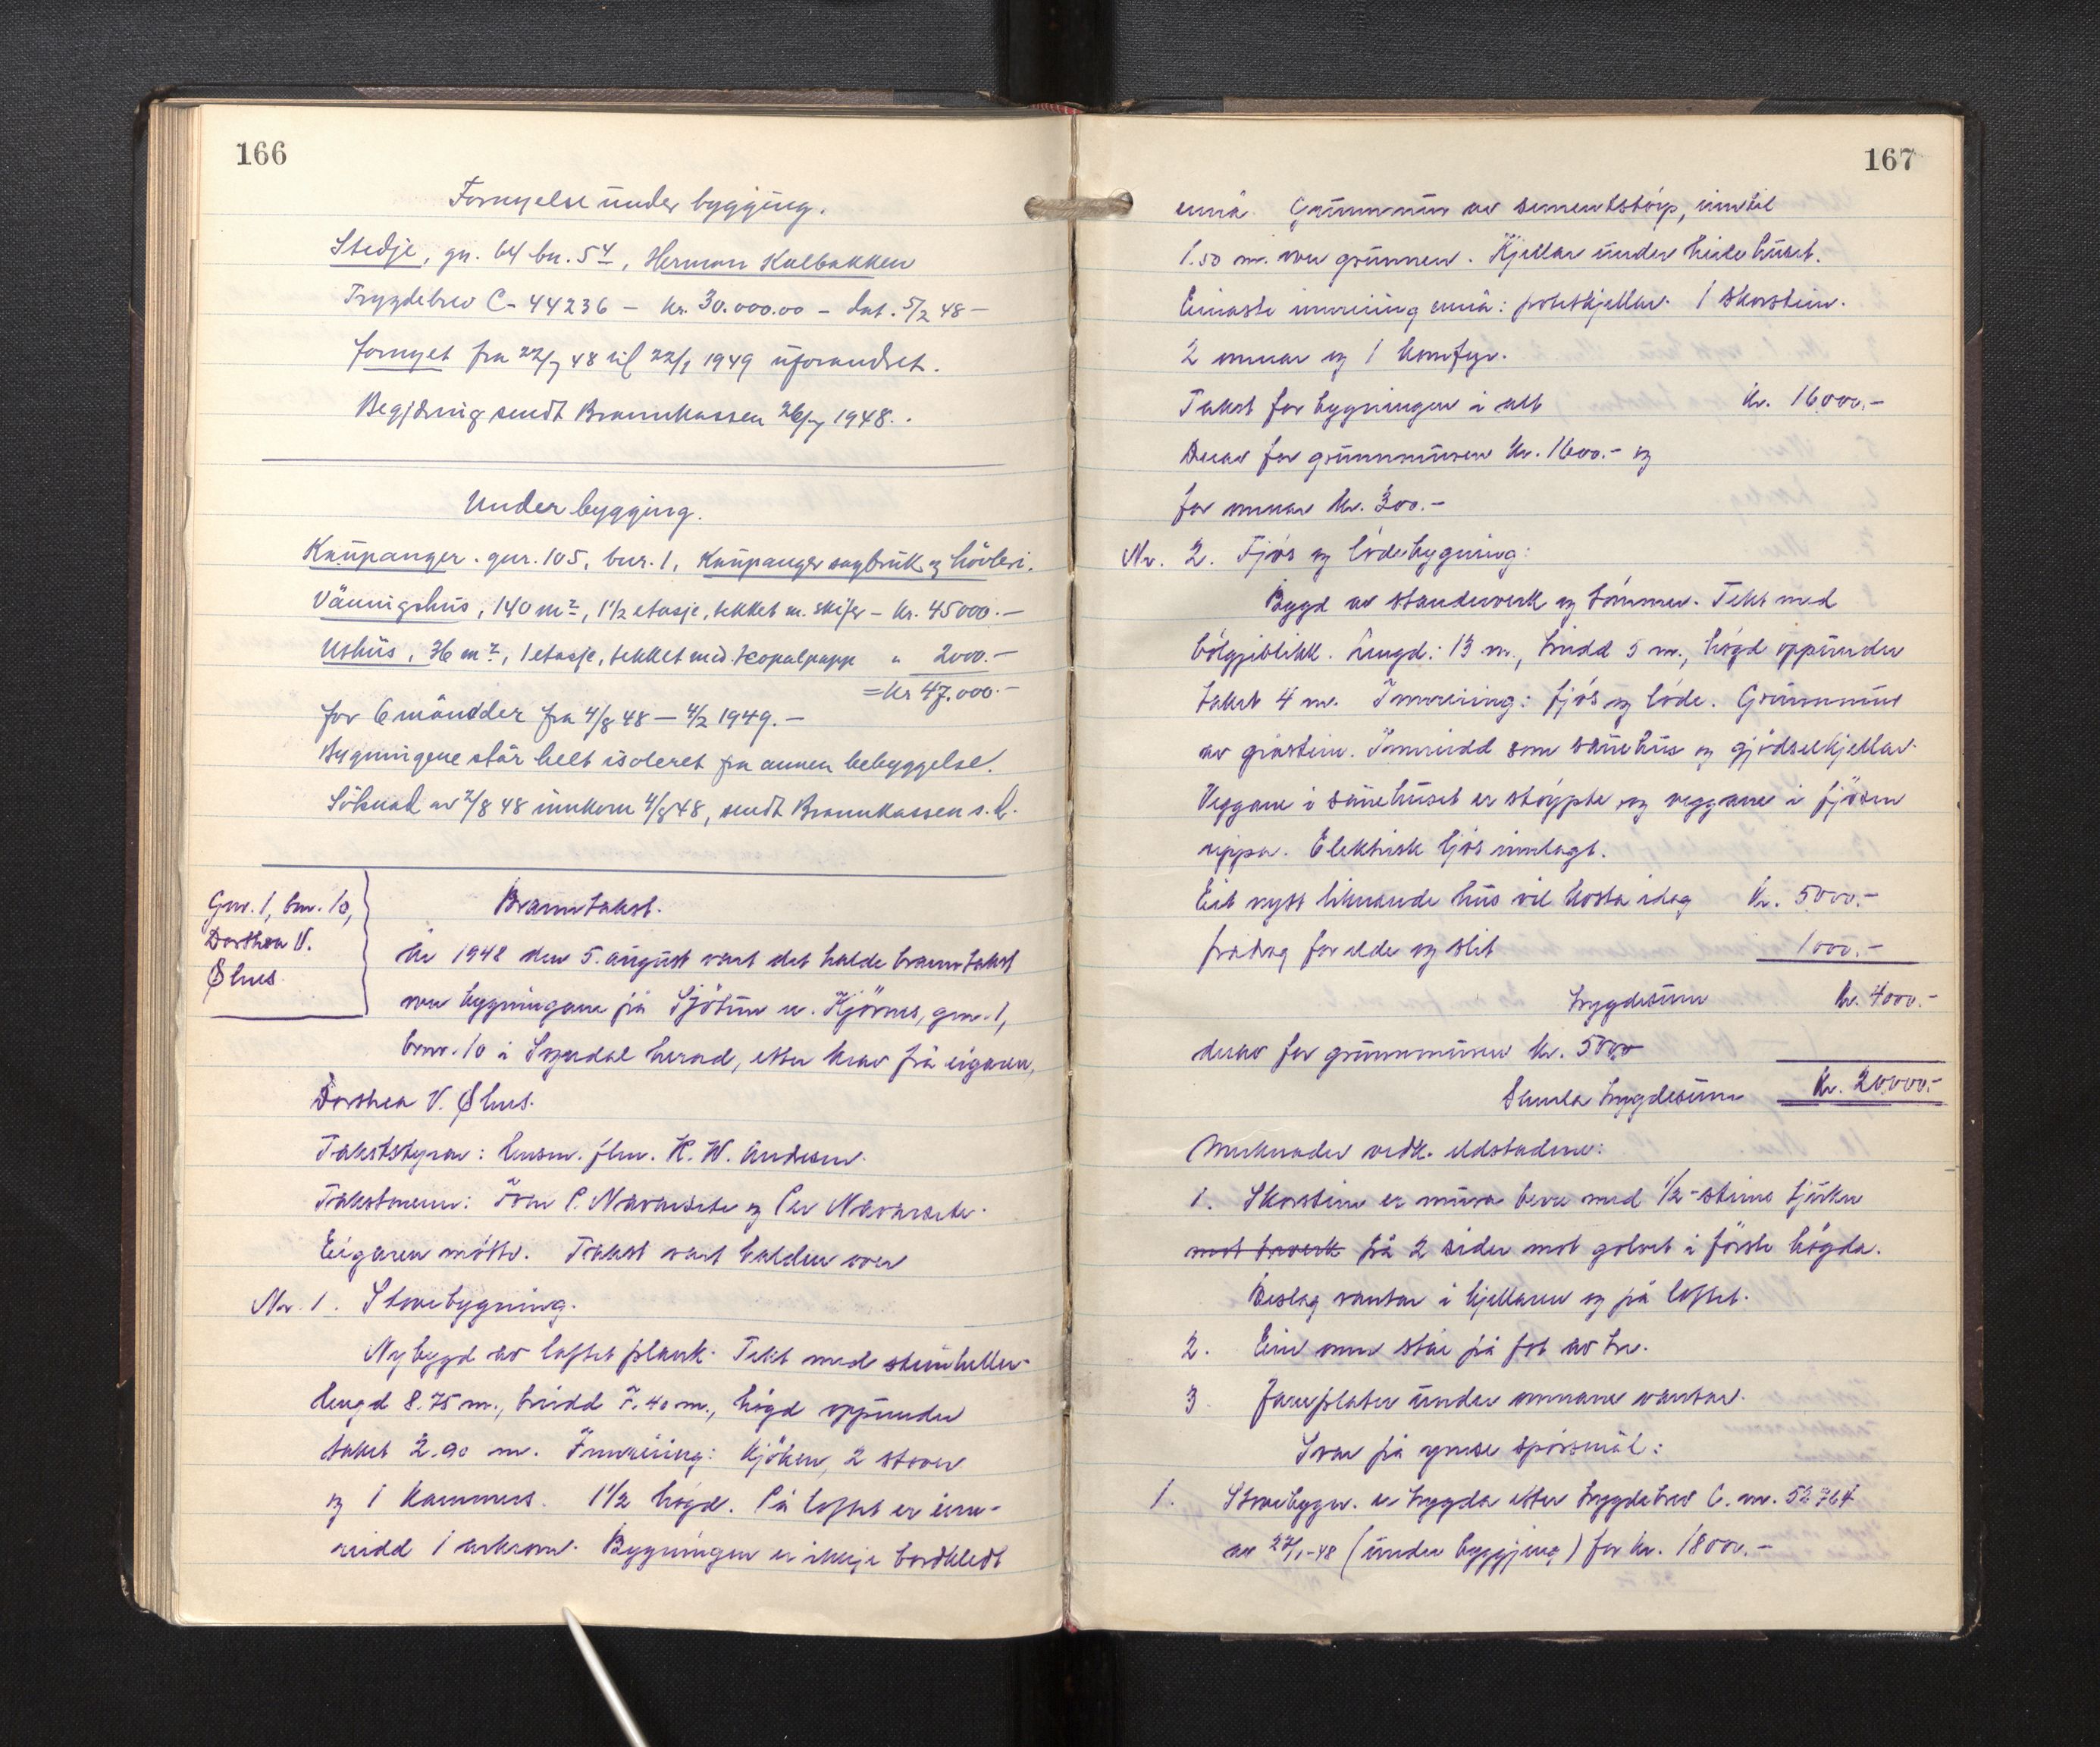 166
Fornyelse under bygging.
Stedje, gn. 64 bn. 54, Herman Kalbakken
Trygdebrev C-44236 – kr. 30.000.00 – dat. 5/2 48 –
fornyet fra 22/7 48 til 22/1 1949 uforandret.
Begjæring sendt Brannkassen 26/7 1948.
Under bygging.
Kaupanger. gnr. 105, bnr. 1, Kaupanger sagbruk og høvleri.
Våningshus, 140 m2, 1 1/2 etasje, tekket m. skifer – kr. 45000.–
Uthus, 36 m2, 1 etasje, tekket med papp " 2000.–
= kr 47.000.–
for 6 måneder fra 4/8 48 – 4/2 1949. –
Bygningene står helt isoleret fra annen bebyggelse.
Søknad av 2/8 48 innkom 4/8 48, sendt Brannkassen s. d.
Gnr. 1, bnr. 10,
Dorthea V.
Øhus.
Branntakst.
År 1948 den 5. august vart det halde branntakst
over bygningane på Sjøtun u. Kjørnes, gnr. 1,
bnr. 10 i Sogndal herad, etter krav frå eigaren,
Dorthea V. Øhus.
Takststyrar: lensm. flm. H. W. Andersen.
Takstmenn: Ivar P. Navarsete og Per Navarsete.
Eigaren møtte. Takst vart halden over
Nr. 1. Stovebygning.
Nybygd av laftet plank. Tekt med steinheller.
Lengd 8.75 m., breidd 7.40 m., høgd oppunder
taket 2.90 m. Innreiing: Kjøken, 2 stover
og 1 kammers. 1 1/2 høgd. På loftet er inn-
reidd 1 arkrom. Bygningen er ikkje bordkledt
167
ennå. Grunnmur av sementstøyp, inntil
1.50 m. over grunnen. Kjellar under heile huset.
Einaste innreiing ennå: potetkjellar. 1 skorstein.
2 omnar og 1 komfyr.
Takst for bygningen i alt kr. 16000.–
Derav for grunnmuren kr. 1600.– og
for omnar kr. 300.–
Nr. 2. Fjøs og lødebygning:
Bygd av standerverk og tømmer. Tekt med
bølgjeblikk. Lengd: 13 m., breidd 5 m., høgd oppunder
taket 4 m. Innreiing: fjøs og løde. Grunnmur
av gråstein. Innreidd som sauehus og gjødselkjellar.
Veggane i sauehuset er støypte og veggane i fjøsen
uppa. Elektrisk ljos innlagt.
Eit nytt liknande hus vil kosta idag kr. 5000.–
fradrag for elde og slit 1000.–
trygdesum kr. 4000.–
derav for grunnmuren kr. 500.–
Samla trygdesum kr. 20000.–
Merknader vedk. eldstadene:
1. Skorstein er mura berre med 1/2-steins tjukn
mot treverk på 2 sider mot golvet i første høgda.
Beslag vantar i kjellaren og på loftet.
2. Ein omn står på fot av tre.
3 Jarnplater under omnane vantar.
Svar på ymse spørsmål:
1. Stovebygn. er trygda etter trygdebrev C. nr. 52764
av 27/1-48 (under byggjing) for kr. 18000.–